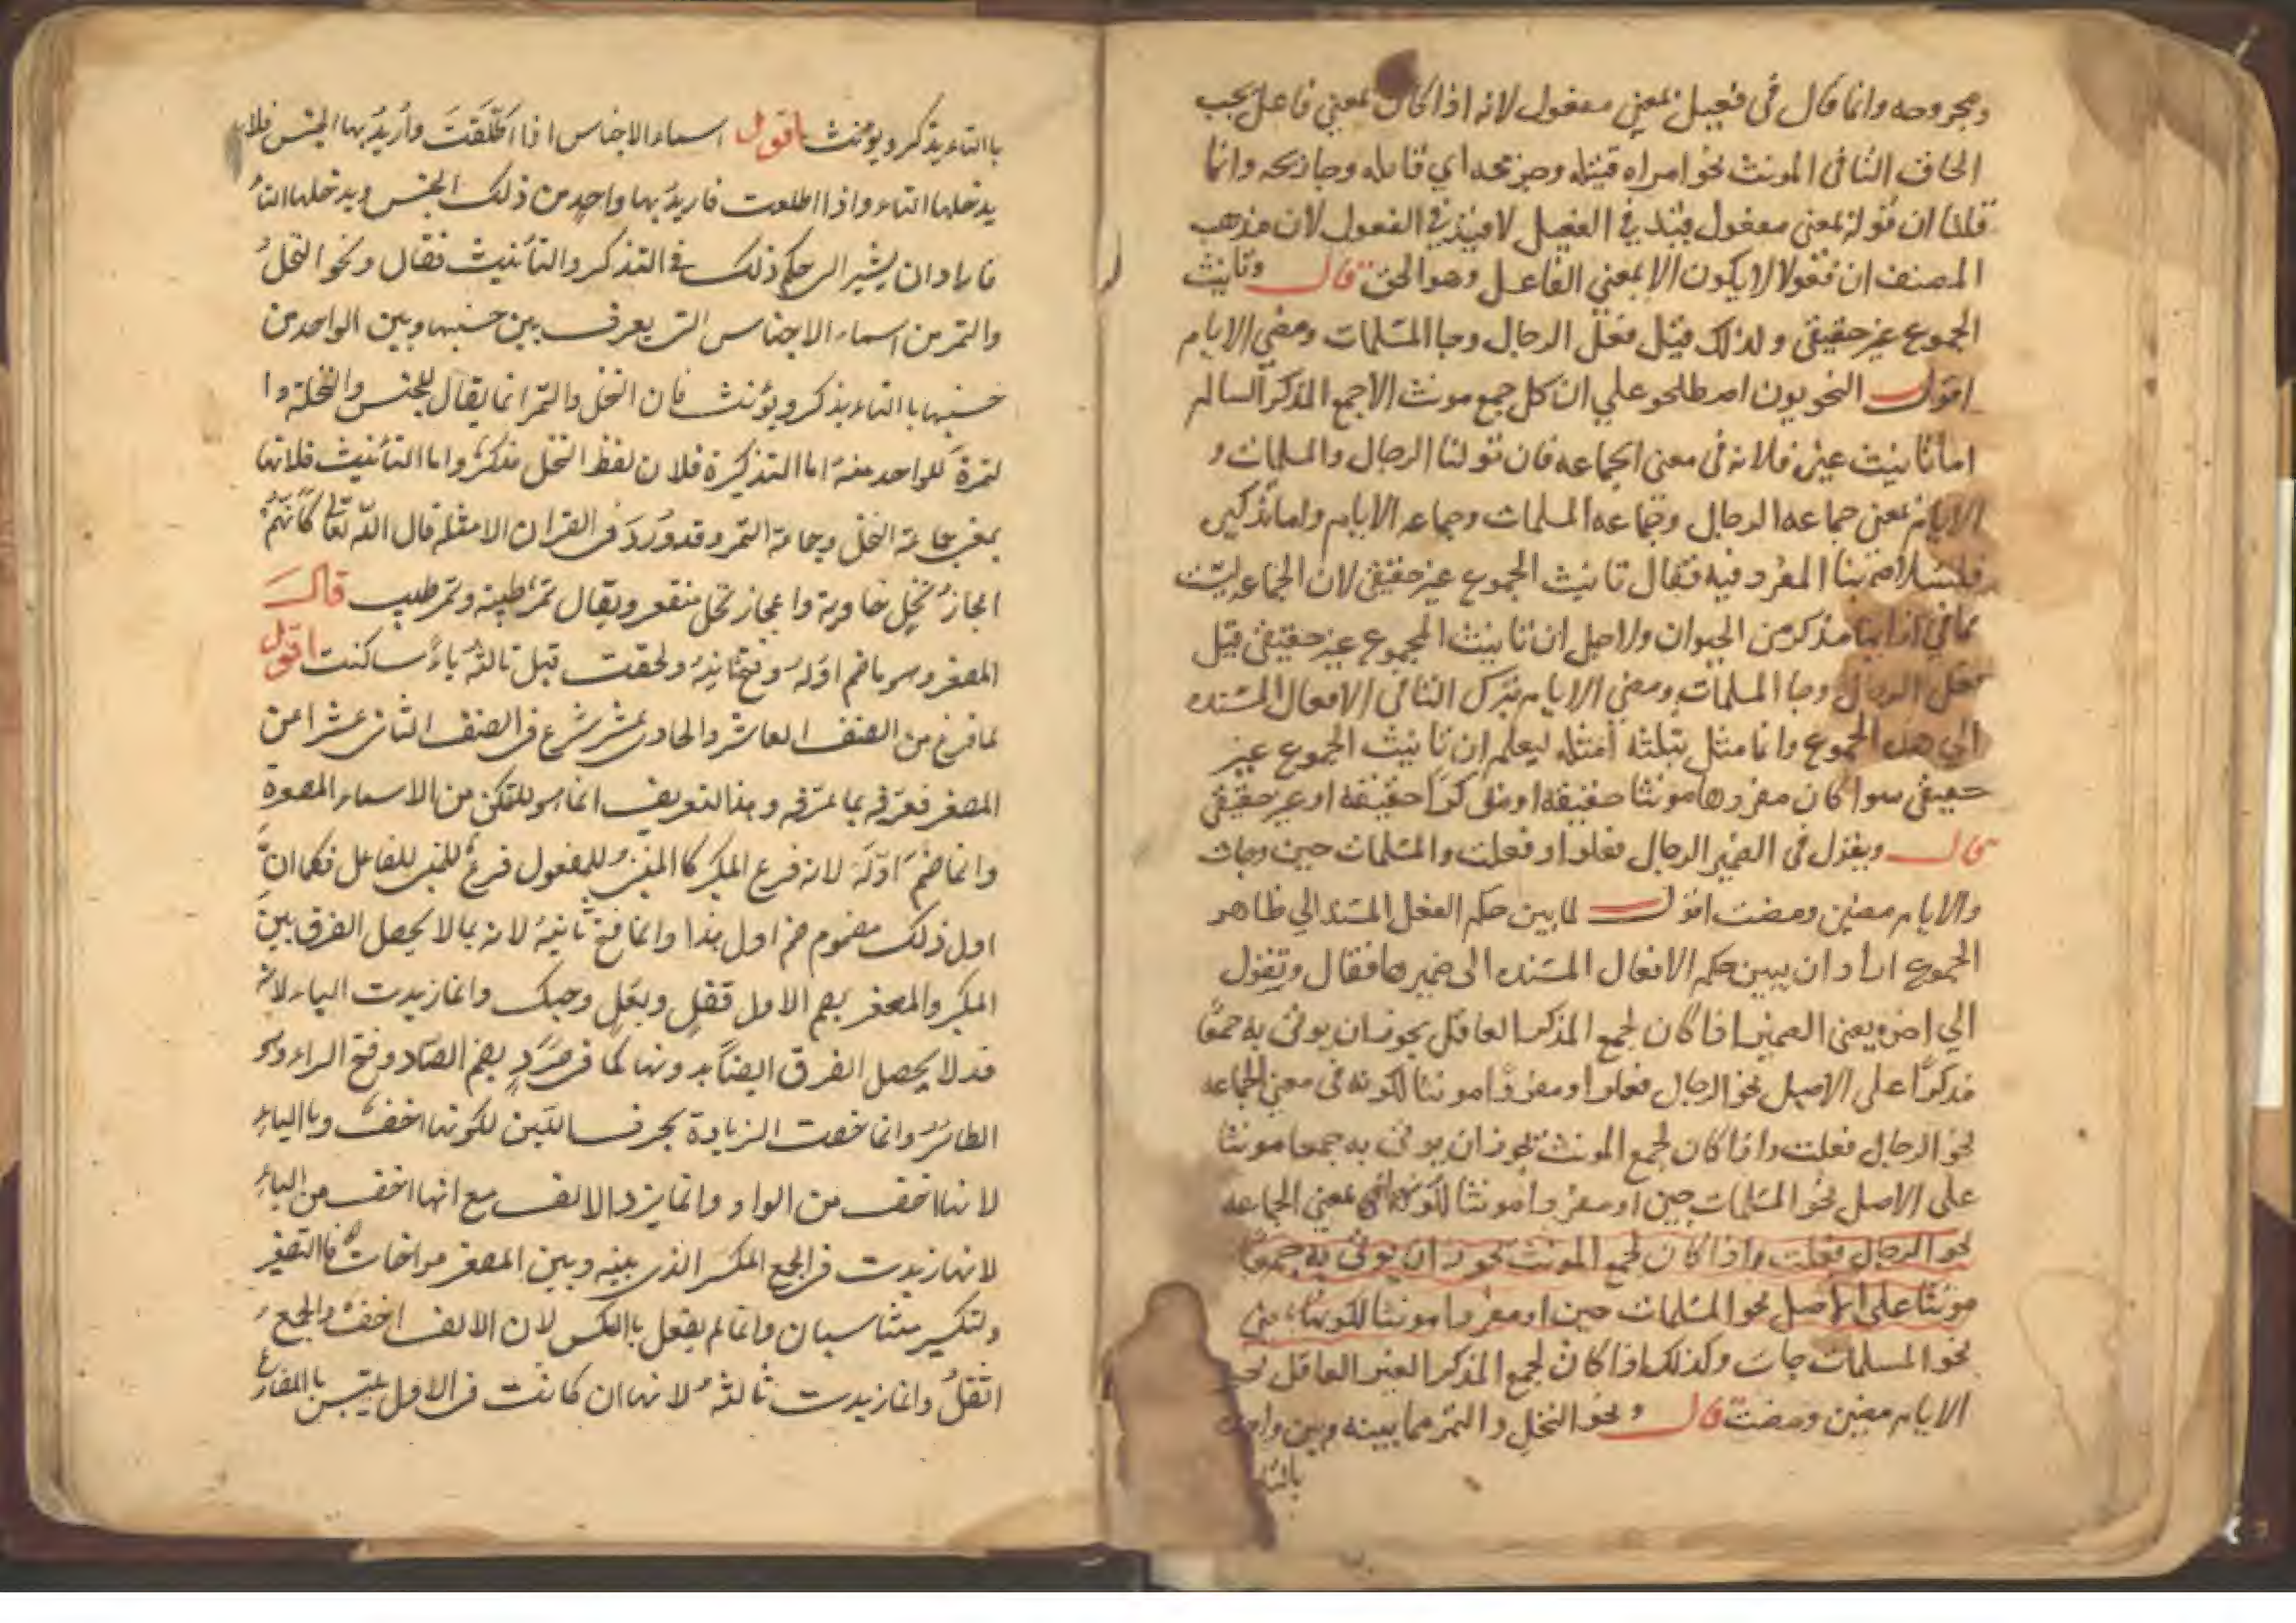 ومجروحه وانما قال في فعيل بمعني مفعول لانه اذا كان بمعني فاعل يجب
الحاق التا في المونث نحو امراه قتيله وجريحه اي قاتله وجارحه وانما
قلنا ان قوله بمعني مفعول قيد في الفعيل لا قيد في الفعول لان مذهب
المصنف ان فعولا لا يكون الا بمعني الفاعل وهو الحق قال وتانيث
الجموع غير حقيقي ولذلك قيل فعل الرجال وجا المسلمات ومضي الايام
اقول النحويون اصطلحو علي ان كل جمع مونث الا جمع المذكر السالم
اما تانيث غيره فلانه في معني الجماعه فان قولنا الرجال والمسلمات و
الايام بمعني جماعه الرجال وجماعه المسلمات وجماعه الايام واما تذكيره
فلسلامة بنا المفرد فيه فقال تانيث الجموع غير حقيقي لان الجماعه ليست
مما في ازايها مذكر من الحيوان ولاجل ان تانيث المجموع غير حقيقي قيل
فعل الرجال وجا المسلمات ومضي الايام بترك التا في الافعال المسنده
الي هذه الجموع وانما مثل بثلثه امثله ليعلم ان تانيث الجموع غير
حقيقي سوا كان مفردها مونثا حقيقه او مذكرا حقيقه او غير حقيقي
قال ويقول في الضمير الرجال فعلوا وفعلت والمسلمات جين وجات
والايام مضين ومضت اقول لما بين حكم الفعل المسند الي ظاهر
الجموع اراد ان يبين حكم الافعال المسنده الي ضميرها فقال وتقول
الي اخره يعني الضمير اذا كان لجمع المذكر العاقل يجوز ان يوتي به جمعا
مذكرا علي الاصل نحو الرجال فعلوا ومفردا مونثا لكونه في معني الجماعه
نحو الرجال فعلت واذا كان لجمع المونث يجوز ان يوتي به جمعا مونثا
علي الاصل نحو المسلمات جين او مفردا مونثا لكونه بمعني الجماعه
نحو الرجال فعلت واذا كان لجمع المونث يجوز ان يوتي به جمعا
مونثا علي الاصل نحو المسلمات جين او مفردا مونثا لكونها
نحو المسلمات جات وكذلك اذا كان لجمع المذكر الغير العاقل نحو
الايام مضين ومضت قال ونحو النخل والتمر مما بينه وبين واحده
بالتا
باالتاء يذكر ويونث اقول اسماء الاجناس اذا اطلقت واريد بها الجنس فلا
يدخلها التاء واذا اطلعت فاريد بها واحد من ذلك الجنس ويدخلها التاء
فاراد ان يشير الى حكم ذلك في التذكر والتأنيث فقال ونحو النخل
والتمر من اسماء الاجناس التى يعرف بين جنسها وبين الواحد من
جنسها باالتاء يذكر ويؤنث فان النخل والتمر انما يقال للجنس والنخلة وا
لتمرة للواحد منه اما التذكيرة فلان لفظ النخل مذكر واما التأنيث فلانها
بمعنى جماعة النخل وجماعة التمر وقد ورد فى القران الامثلة قال الله تعالى كأنهم
اعجاز نخل خاوية واعجاز نخل منقعر ويقال تمر طيبة وتمر طيب قال
المصغر وهو ما ضم اوله وفتح ثانيه ولحقت قبل ثالثه ياء ساكنت اقول
لما فرغ من الصنف العاشر والحادى عشر شرع فى الصنف الثانى عشر اعنى
المصغر فعرفه بما عرفه وهذا لتعريف انما هو للمتمكن من الاسماء المصغرة
وانما ضم اوله لانه فرع المكبر كا المبنى للمفعول فرع للمبنى للفاعل فكما ان
اول ذلك مضموم ضم اول هذا وانما فتح ثانيه لانه بما لا يحصل الفرق بين
المكبر والمصغر بضم الاول قفل وبغل وحبك وانما زيدت الياء لانه
قد لا يحصل الفرق ايضا بدونها كما فى صرد بضم الصاد وفتح الراء وهو
الطائر وانما خصت الزيادة بحرف اللين لكونها اخف وباالياء
لانها اخف من الواو وانما يزد الالف مع انها اخف من الياء
لانها زيدت فى الجمع المكسر الذى بينه وبين المصغر مواخات فاالتصغير
ولتكسير متناسبان وانما لم يفعل باالعكس لان الالف اخف والجمع
اثقل وانما زيدت ثالثه لانها ان كانت فى الاول يلتبس باالمضارع